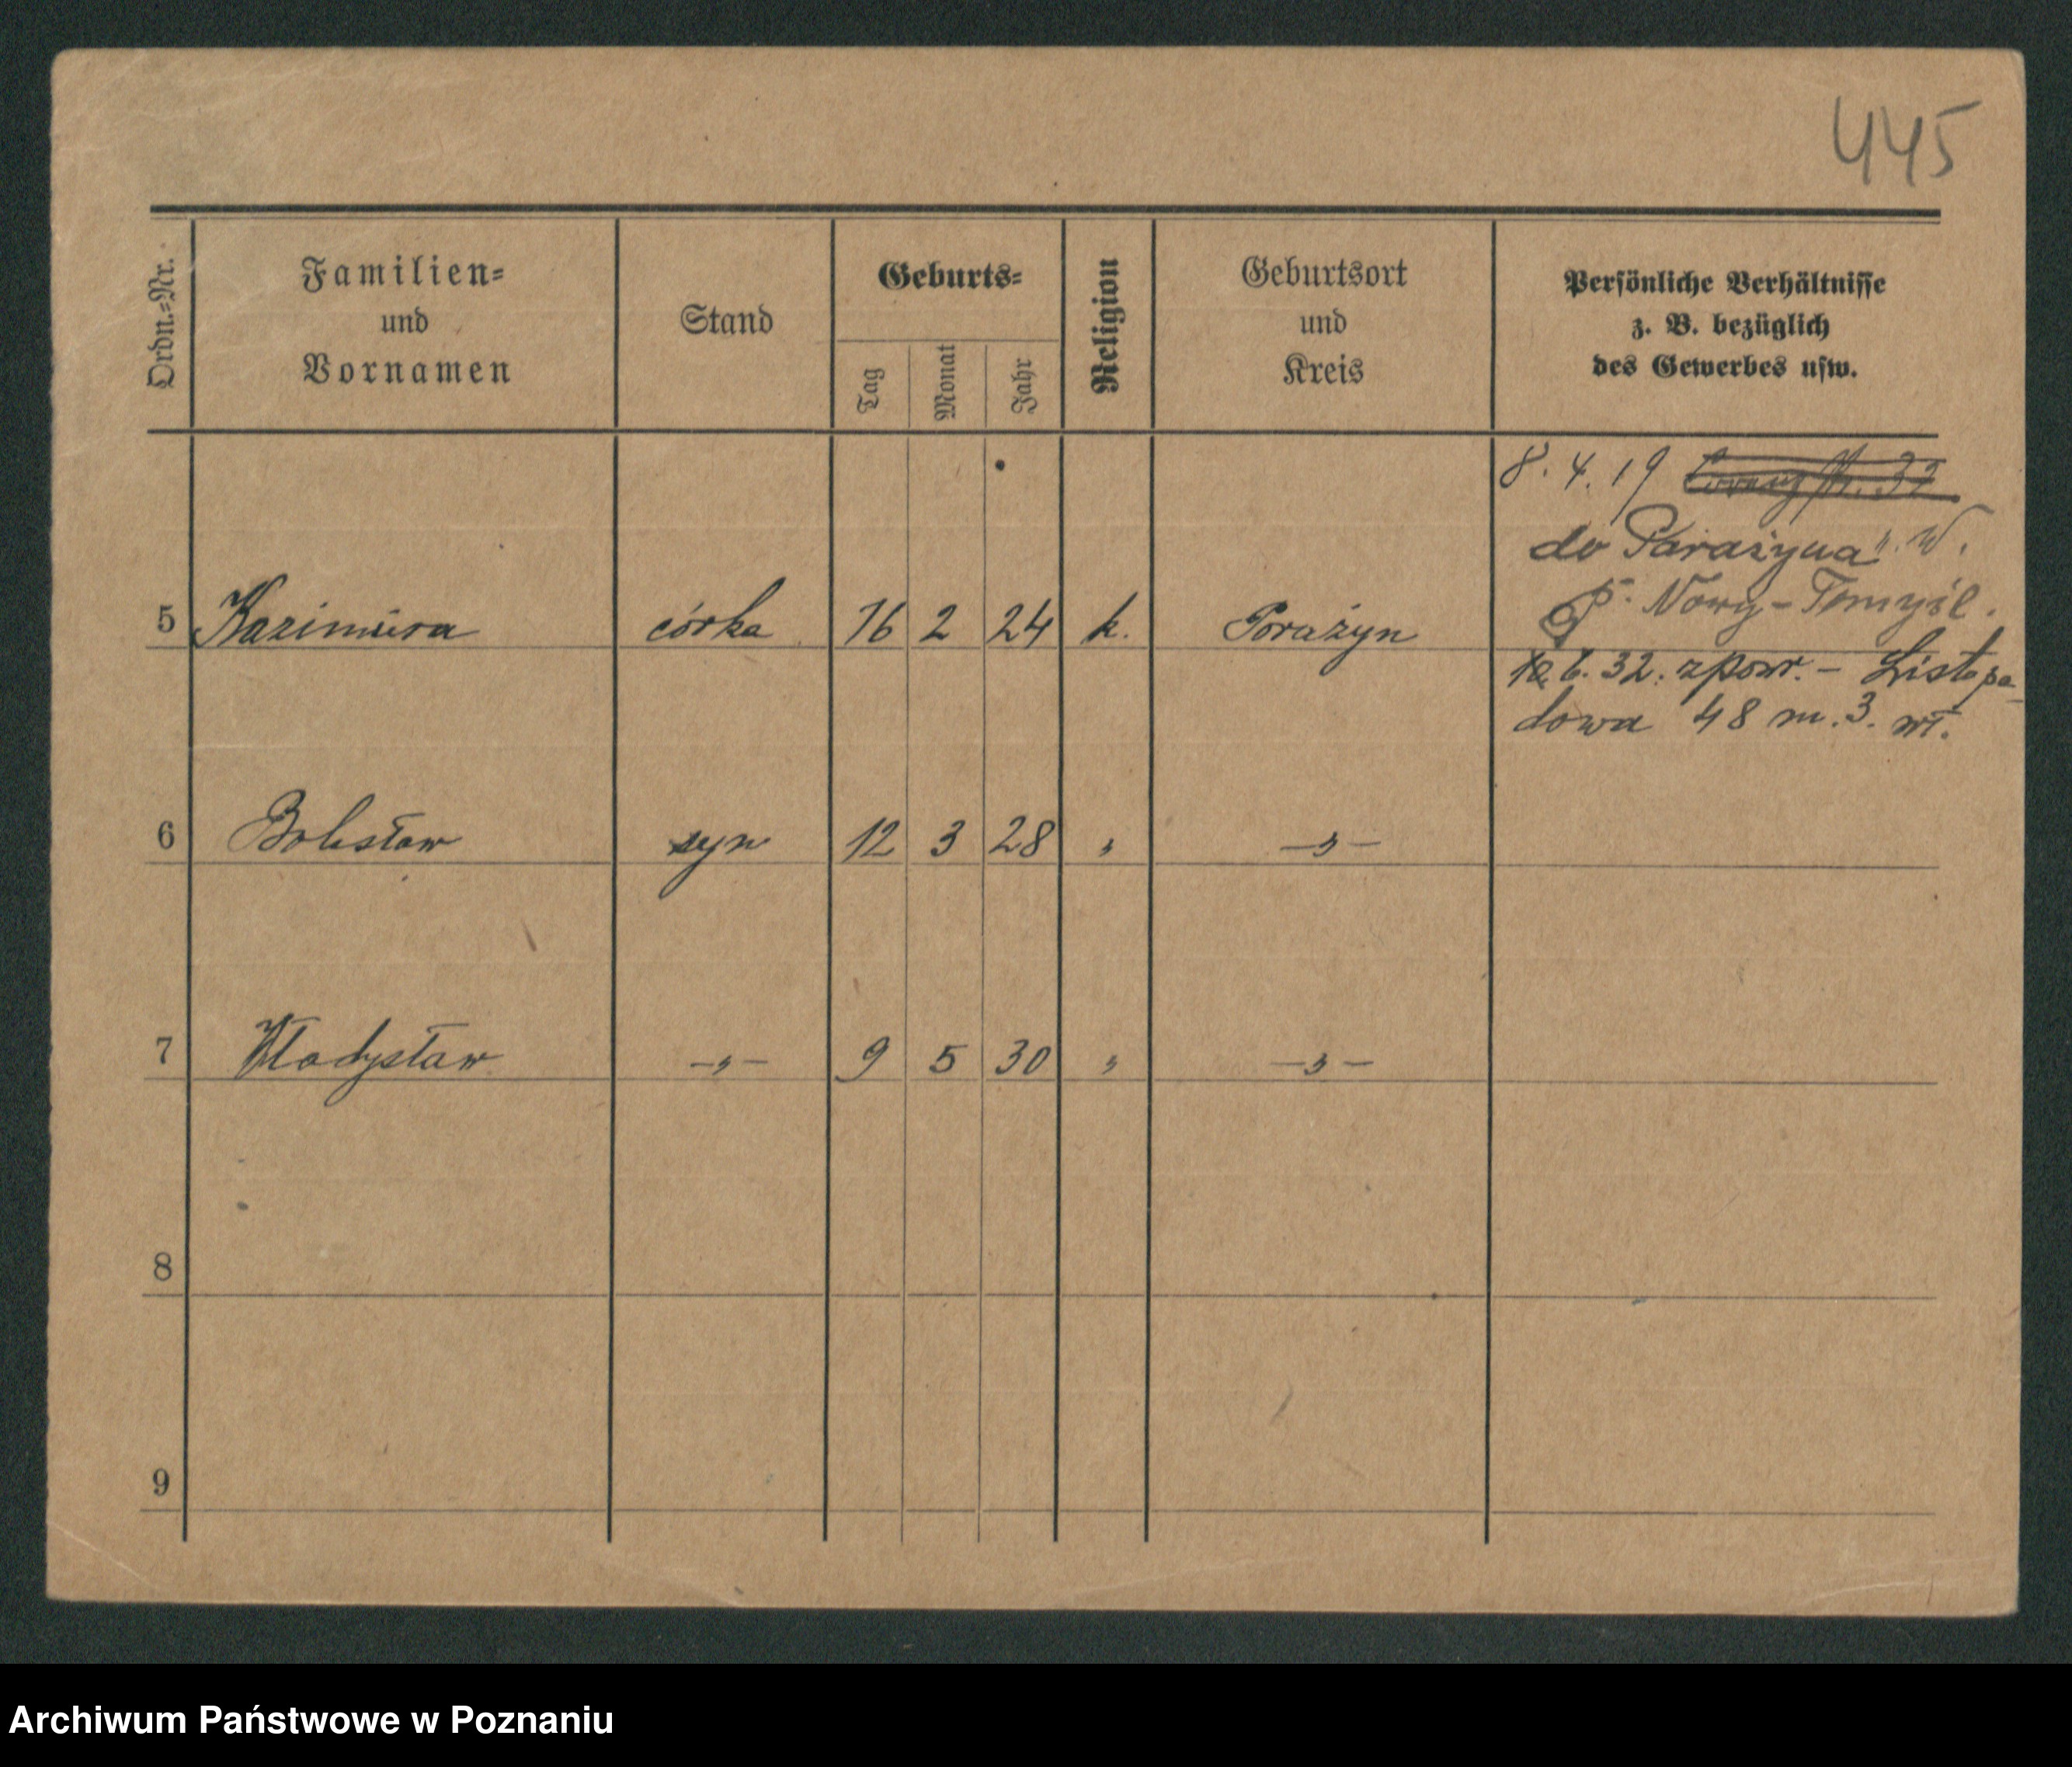 445
Ordn.=Nr.
Familien=
und
Vornamen
Stand
Geburts=
Tag
Monat
Jahr
Religion
Geburtsort
und
Kreis
Persönliche Verhältnisse
z. B. bezüglich
des Gewerbes usw.
8. 4. 19
do Parażyna
p. Nowy-Tomyśl.
5 Kazimiera córka 16 2 24 k. Porażyn
6. 32. zpow. - Listopa-
dowa 48 m. 3. wł.
6 Bolesław syn 12 3 28 " —"—
7 Władysław —"— 9 5 30 " —"—
8
9
Archiwum Państwowe w Poznaniu